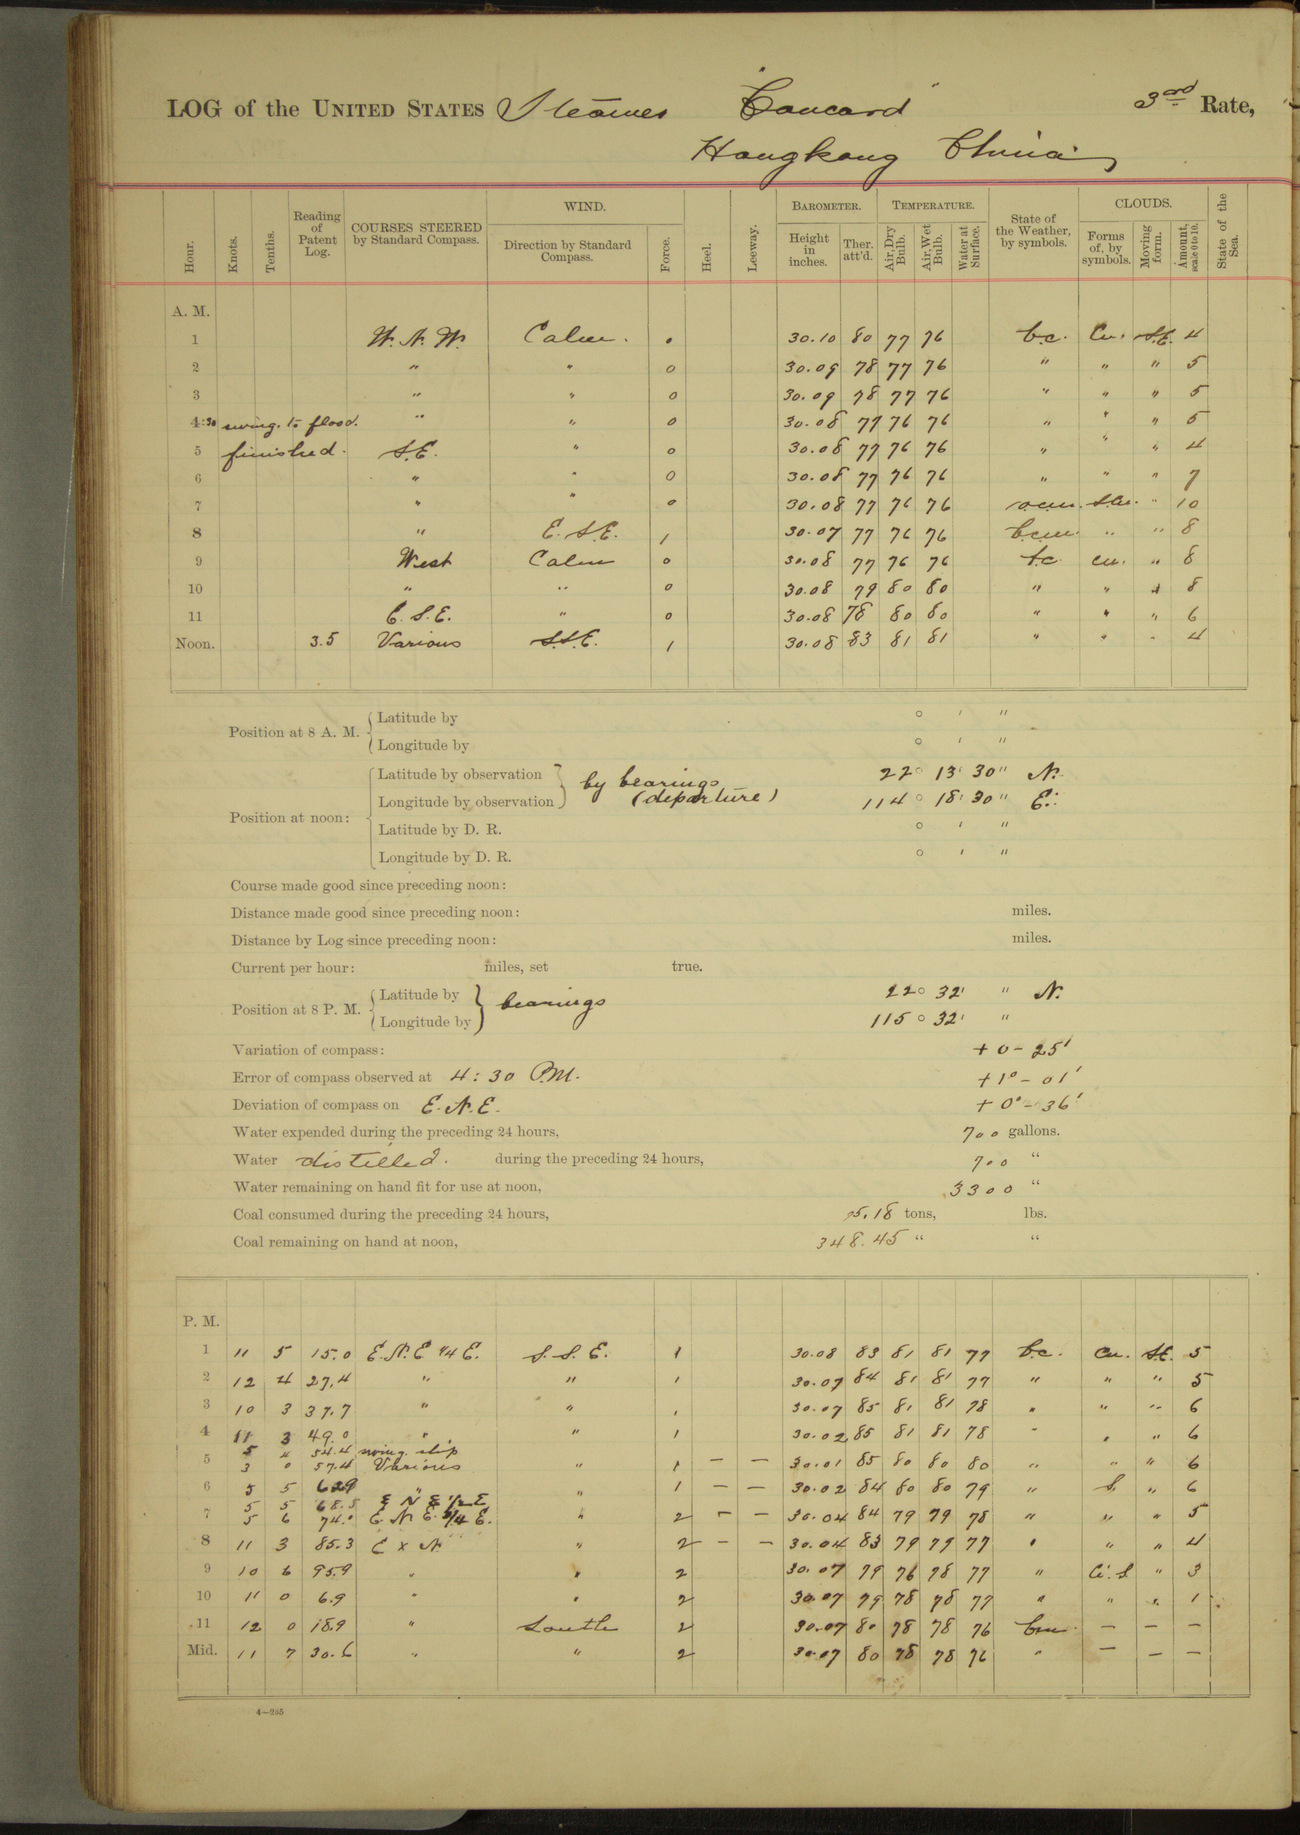 LOG of the UNITED STATES Steamer "Concord" 3rd Rate,
Hongkong China,
Hour. Knots. Tenths. Reading of Patent Log. COURSES STEERED by Standard Compass. WIND. Direction by Standard Compass. Force. Heel. Leeway. BAROMETER. Height in inches. Ther. att'd. TEMPERATURE. Air, Dry Bulb. Air, Wet Bulb. Water at Surface. State of the Weather, by symbols. CLOUDS. Forms of, by symbols. Moving form. Amount, scale 0 to 10. State of the Sea.
A. M.
1 W. N. W. Calm. 0 30.10 80 77 76 b.c. Cu. S.E. 4
2 " " 0 30.09 78 77 76 " " " 5
3 " " 0 30.09 78 77 76 " " " 5
4:30 swing. to flood. " " 0 30.08 77 76 76 " " " 5
5 finished. S.E. " 0 30.08 77 76 76 " " " 4
6 " " 0 30.08 77 76 76 " " " 7
7 " " 0 30.08 77 76 76 o.c.m. S.Cu. " 10
8 " E. S.E. 1 30.07 77 76 76 b.c.m. " " 8
9 West Calm 0 30.08 77 76 76 b.c. cu. " 8
10 " " 0 30.08 79 80 80 " " " 8
11 E. S.E. " 0 30.08 78 80 80 " " " 6
Noon. 3.5 Various S.S.E. 1 30.08 83 81 81 " " " 4
Position at 8 A. M. { Latitude by ° ' "
Longitude by ° ' "
Position at noon: { Latitude by observation } by bearings 22° 13' 30" N.
Longitude by observation (departure) 114° 18' 30" E.
Latitude by D. R. ° ' "
Longitude by D. R. ° ' "
Course made good since preceding noon:
Distance made good since preceding noon: miles.
Distance by Log since preceding noon: miles.
Current per hour: miles, set true.
Position at 8 P. M. { Latitude by } bearings 22° 32' " N.
Longitude by 115° 32' "
Variation of compass: + 0 - 25'
Error of compass observed at 4:30 P.M. + 1° - 01'
Deviation of compass on E. N. E. + 0° - 36'
Water expended during the preceding 24 hours, 700 gallons.
Water distilled. during the preceding 24 hours, 700 "
Water remaining on hand fit for use at noon, 3300 "
Coal consumed during the preceding 24 hours, 5.18 tons, lbs.
Coal remaining on hand at noon, 348.45 " "
P. M.
1 11 5 15.0 E. N. E 1/4 E. S. S. E. 1 30.08 83 81 81 77 b.c. Cu. S.E. 5
2 12 4 27.4 " " 1 30.07 84 81 81 77 " " " 5
3 10 3 37.7 " " 1 30.07 85 81 81 78 " " " 6
4 11 3 49.0 " " 1 30.02 85 81 81 78 " " " 6
5 4 54.4 swing. ship
5 3 0 57.4 Various " 1 — — 30.01 85 80 80 80 " " " 6
6 5 5 62.9 " " 1 — — 30.02 84 80 80 79 " S " 6
5 5 68.5 E N E 1/2 E
7 5 6 74.0 E. N. E. 3/4 E. " 2 — — 30.04 84 79 79 78 " " " 5
8 11 3 85.3 E x N " 2 — — 30.04 83 79 79 77 " " " 4
9 10 6 95.9 " " 2 30.07 79 76 78 77 " Ci. S " 3
10 11 0 6.9 " " 2 30.07 79 78 78 77 " " " 1
11 12 0 18.9 " South 2 30.07 80 78 78 76 b.m. — — —
Mid. 11 7 30.6 " " 2 30.07 80 78 78 76 " — — —
4—255